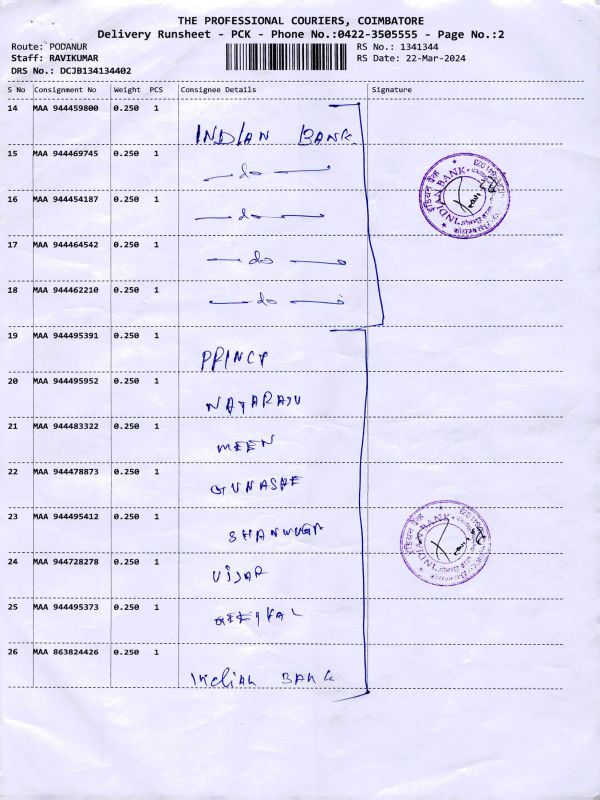 THE PROFESSIONAL COURIERS, COIMBATORE
Delivery Runsheet - PCK - Phone No.:0422-3505555 - Page No.:2
Route: PODANUR RS No.: 1341344
Staff: RAVIKUMAR RS Date: 22-Mar-2024
DRS No.: DCJB134134402
S No Consignment No Weight PCS Consignee Details Signature
14 MAA 944459800 0.250 1 INDIAN BANK
15 MAA 944469745 0.250 1 — do —
16 MAA 944454187 0.250 1 — do —
17 MAA 944464542 0.250 1 — do —
18 MAA 944462210 0.250 1 — do —
19 MAA 944495391 0.250 1 PRINCY
20 MAA 944495952 0.250 1 NATARAJU
21 MAA 944483322 0.250 1 MEEN
22 MAA 944478873 0.250 1 GUNASRE
23 MAA 944495412 0.250 1 SHANMUGA
24 MAA 944728278 0.250 1 VIJAR
25 MAA 944495373 0.250 1
26 MAA 863824426 0.250 1 Indian BANK
इंडियन बैंक
INDIAN BANK
INDIAN BANK